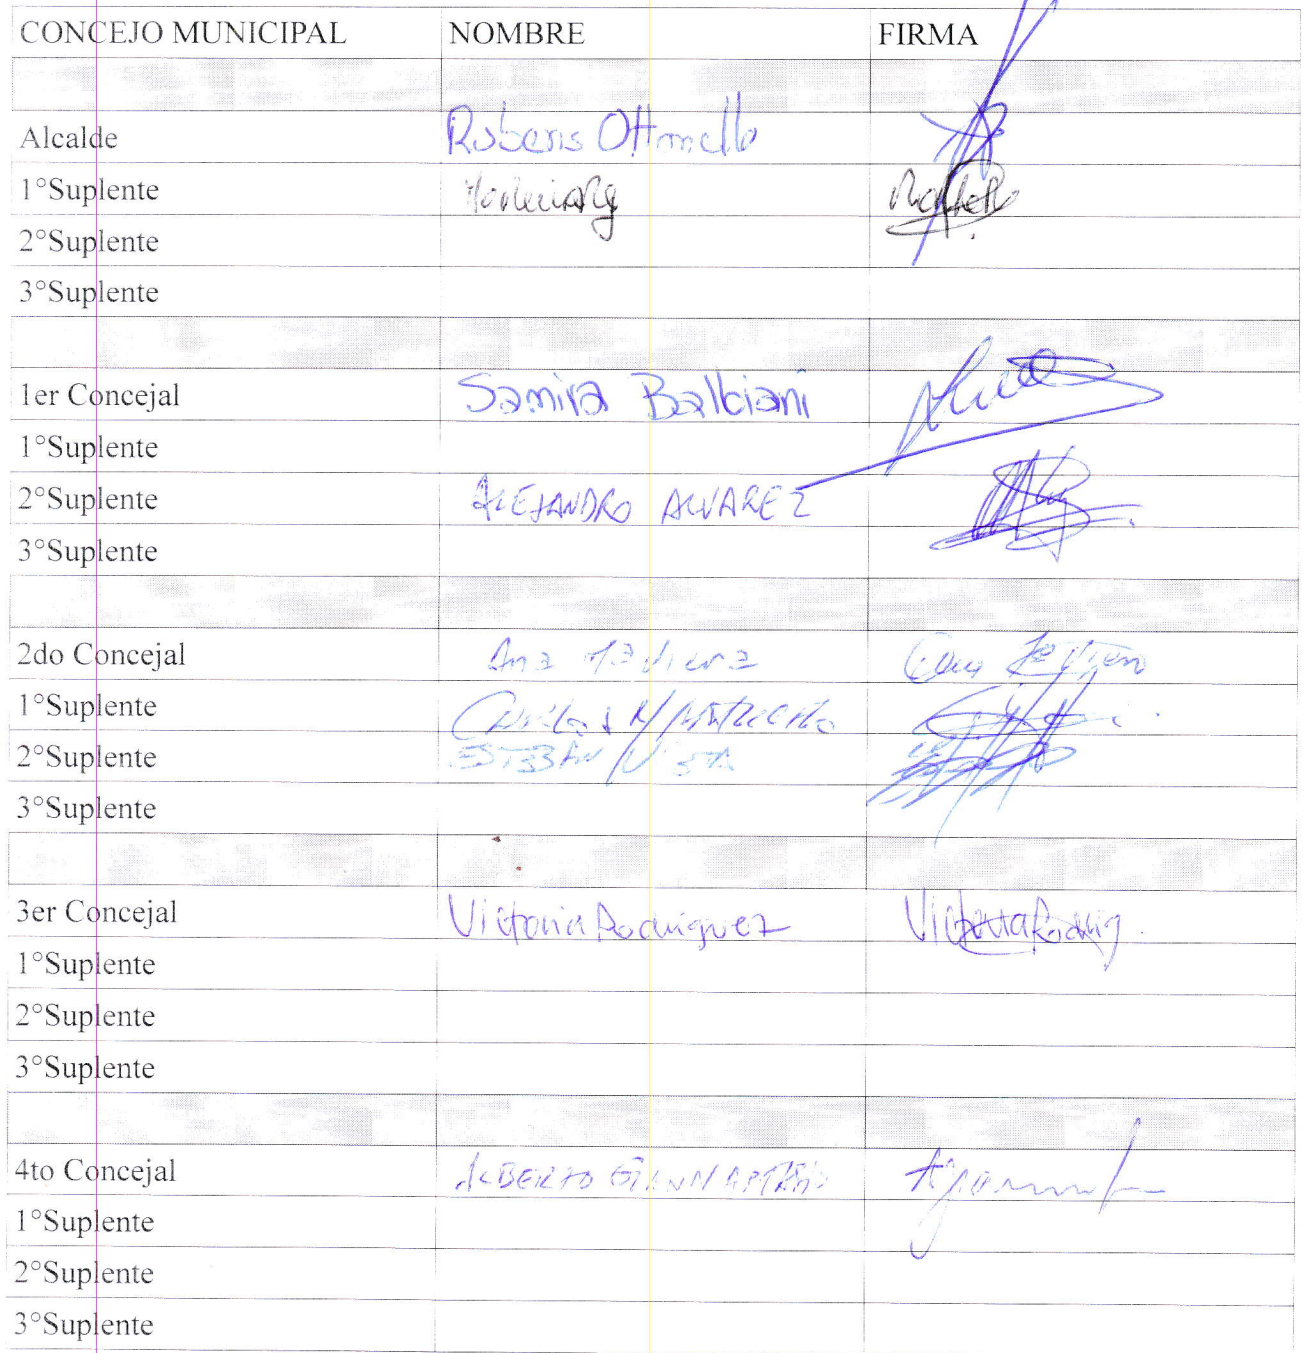 CONCEJO MUNICIPAL NOMBRE FIRMA
Alcalde Rubens Ottonello
1°Suplente
2°Suplente
3°Suplente
1er Concejal Samira Balbiani
1°Suplente
2°Suplente ALEJANDRO ALVAREZ
3°Suplente
2do Concejal Ana
1°Suplente
2°Suplente ESTEBAN
3°Suplente
3er Concejal Victoria Rodriguez Victoria Rodrig
1°Suplente
2°Suplente
3°Suplente
4to Concejal ALBERTO
1°Suplente
2°Suplente
3°Suplente